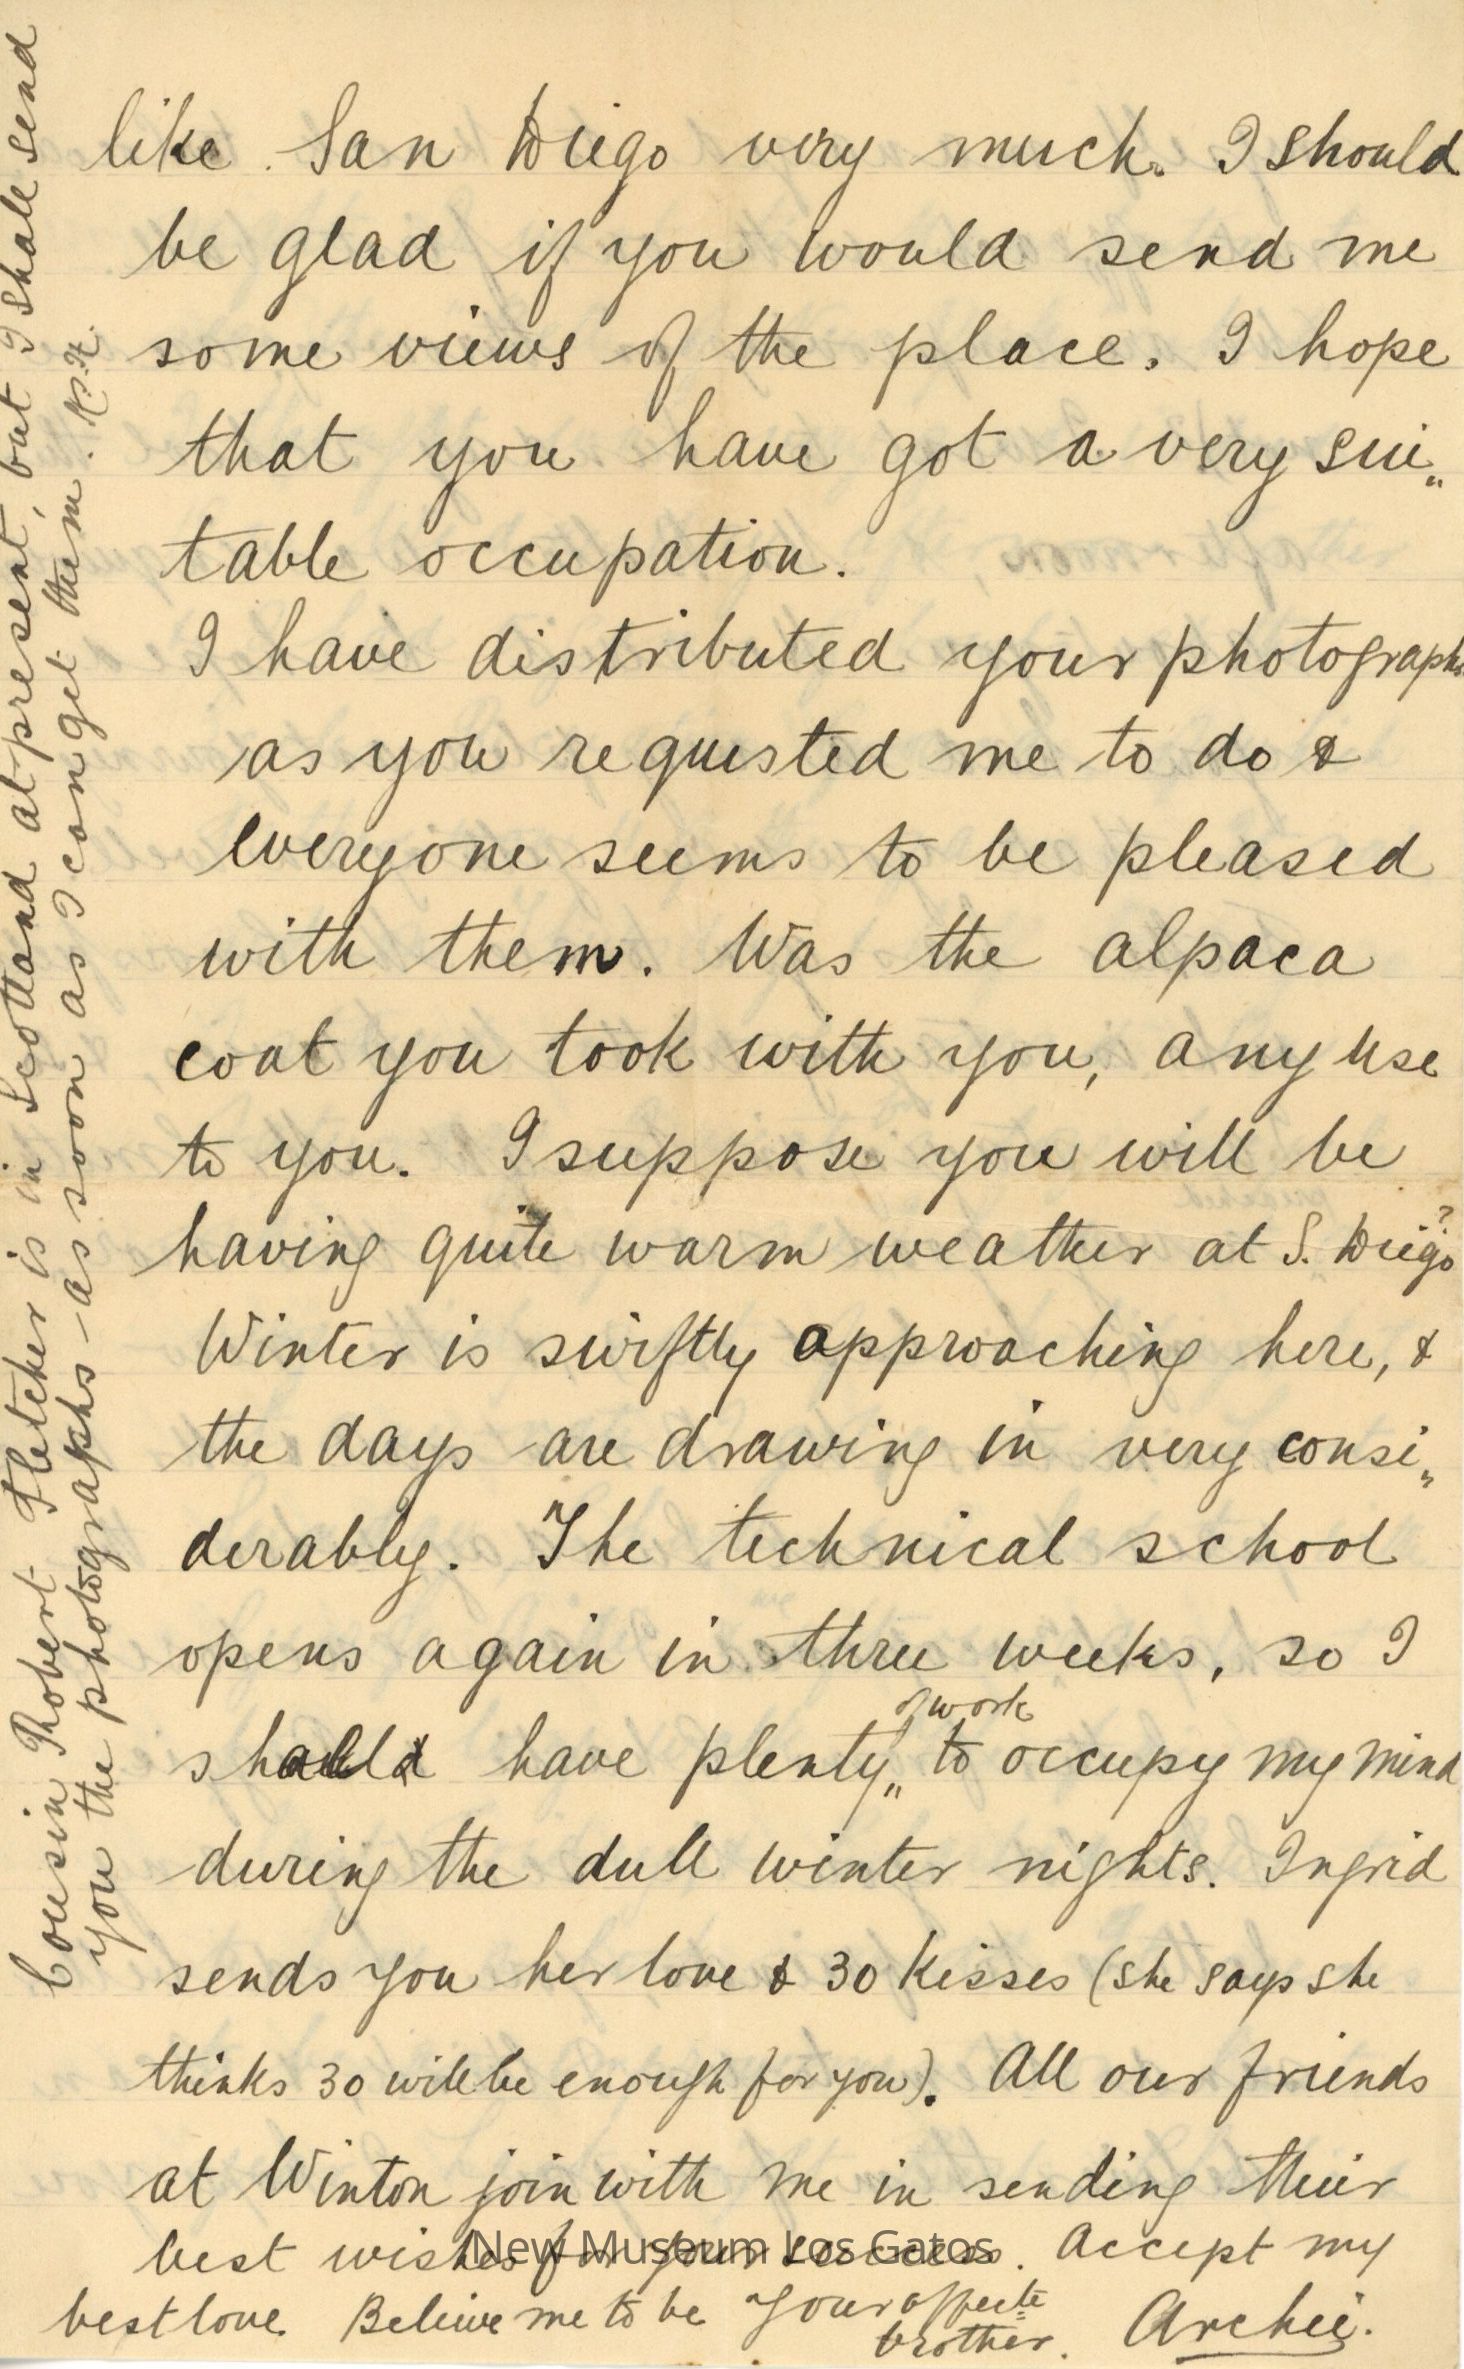 like San Diego very much. I should
be glad if you would send me
some views of the place. I hope
that you have got a very sui„
table occupation.
I have distributed your photographs
as you requested me to do &
everyone seems to be pleased
with them. Was the alpaca
coat you took with you, any use
to you. I suppose you will be
having quite warm weather at S. Diego?
Winter is swiftly approaching here, &
the days are drawing in very consi„
derably. The technical school
opens again in three weeks, so I
shall have plenty„ of work to occupy my mind
during the dull winter nights. Ingrid
sends you her love & 30 Kisses (she says she
thinks 30 will be enough for you). All our friends
at Winton join with me in sending their
best wishes for your success. Accept my
best love. Believe me to be Your affecte brother. Archie.
Cousin Robert Fletcher is in Scotland at present, but I shall send
you the photographs - as soon as I can get them.
New Museum Los Gatos